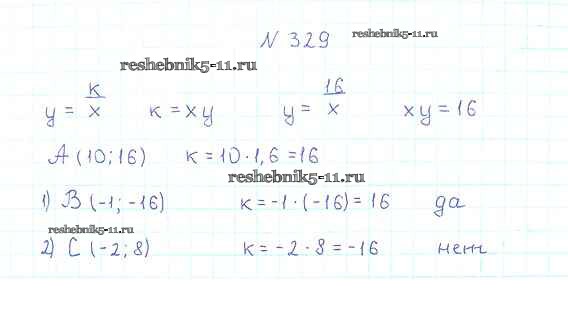 № 329 reshebnik5-11.ru
reshebnik5-11.ru
y = k/x k = xy y = 16/x xy = 16
A (10; 16) k = 10 · 1,6 = 16
reshebnik5-11.ru
1) B (-1; -16) k = -1 · (-16) = 16 да
reshebnik5-11.ru
2) C (-2; 8) k = -2 · 8 = -16 нет